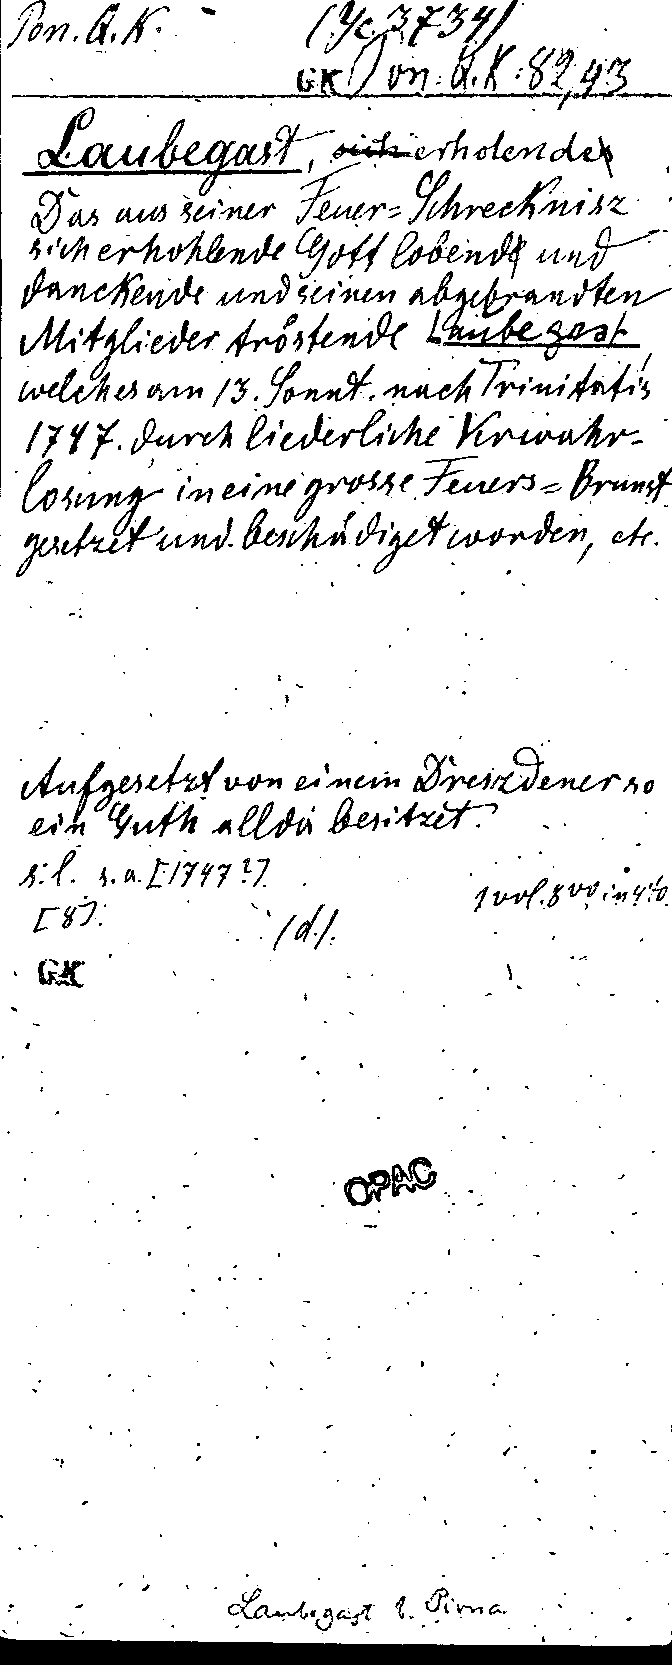 Pon. Q. K. (Yc. 3734)
GK Pon. Q. K. 82,43
Laubegast, sich erholendes
Das aus seiner Feuer=Schrecknisz
sich erhohlende Gott lobende und
danckende und seinen abgebrandten
Mitglieder tröstende Laubegast,
welches am 13. Sonnt. nach Trinitatis
1747. durch liederliche Verwahr-
losung in eine grosse Feuers=Brunst
gesetzet und beschädiget worden, etc.
Aufgesetzt von einem Dreszdener so
ein Guth allda besitzet.
s. l. s. a. [1747?]
[8]. (d.). 1 vol. 8vo in 4to.
GK
OPAC
Laubegast b. Pirna